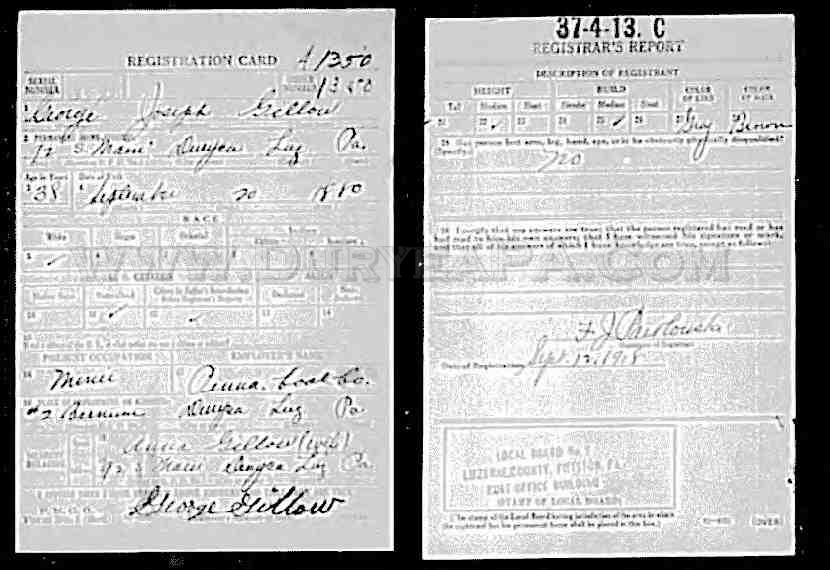 REGISTRATION CARD A1350
SERIAL NUMBER ORDER NUMBER 1350
1 George Joseph Gillow
2 PERMANENT HOME ADDRESS
72 S Main Duryea Luz Pa.
Age in Years Date of Birth
38 September 20 1880
RACE
White Negro Oriental Indian
5 ✓ 6 7 8 9
U. S. CITIZEN ALIEN
Native Born Naturalized Citizen by Father's Naturalization Before Registrant's Majority Declarant
10 11 ✓ 12 ✓ 13 14
15
PRESENT OCCUPATION EMPLOYER'S NAME
16 Miner 17 Penna. Coal Co.
18 PLACE OF EMPLOYMENT OR BUSINESS
#2 Barnum Duryea Luz Pa
NEAREST RELATIVE
19 Anna Gillow (wife)
72 S Main Duryea Luz Pa
P. M. G. O.
George Gillow
37-4-13. C
REGISTRAR'S REPORT
DESCRIPTION OF REGISTRANT
HEIGHT BUILD COLOR OF EYES COLOR OF HAIR
Tall Medium Short Slender Medium Stout
21 22 ✓ 23 24 25 ✓ 26 27 Gray 28 Brown
29 Has person lost arm, leg, hand, eye, or is he obviously physically disqualified?
(Specify) no
30 I certify that my answers are true; that the person registered has read or has
had read to him his own answers; that I have witnessed his signature or mark,
and that all of his answers of which I have knowledge are true, except as follows:
WWW.DURYEAPA.COM
F. J.
Date of Registration Sept. 12, 1918
LOCAL BOARD No.
LUZERNE COUNTY, PITTSTON, PA.
POST OFFICE BUILDING
(STAMP OF LOCAL BOARD)
(The stamp of the Local Board having jurisdiction of the area in which
the registrant has his permanent home shall be placed in this box.)
(OVER)